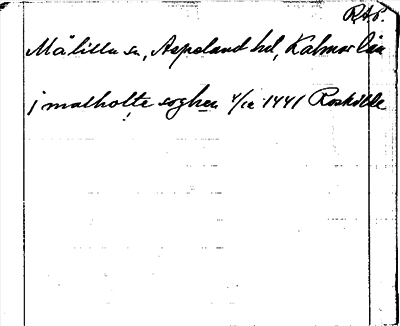 RAP.
Målilla sn, Aspeland hd, Kalmar län
j malholte soghen 4/12 1441 Roskilde